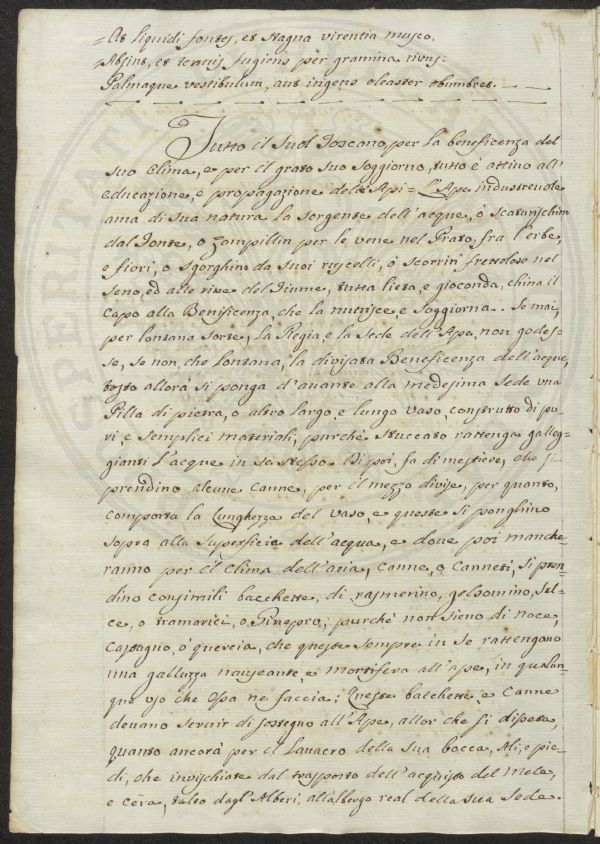 =At liquidi fontes, et stagna virentia musco.
=Absint, et tenuis fugiens per gramina rivus:
Palmaque vestibulum, aut ingens oleaster obumbret.
Tutto il Suol Toscano, per la beneficenza del
suo Clima, e per il grato suo Soggiorno, tutto è attivo all'
educazione, e propagazione dell'Api= L'Ape industrevole
ama di sua natura la sorgente dell'acque, ò scaturischino
dal Fonte, o Zampillin per le vene nel Prato, fra l'erbe,
e fiori, o sgorghino da suoi ruscelli, ò scorrin' frettolose nel
seno, ed alle rive del Fiume, tutta lieta, e gioconda, china il
Capo alla Benificenza, che la nutrisce, e soggiorna. So mai,
per lontana sorte, la Regia, e la Sede dell'Ape, non godes-
se, se non, che lontana, la divisata Beneficenza dell'acque,
tosto allorà si ponga d'avante alla medesima Sede una
Pilla di pietra, o altro largo, e lungo vaso, construtto di pu-
ri, e semplici materiali, purchè stuccato rattenga galleg-
gianti l'acque in se stesso. Di poi, fa di mestiere, che si
prendino alcune canne, per il mezzo divise, per quanto,
comporta la Lunghezza del vaso, e queste si ponghino
sopra alla superficie dell'acqua, e dove poi manche-
ranno per il Clima dell'aria, Canne, o Canneti, si pren-
dino consimili bacchette, di rasmerino, gelsomino, Sel-
ce, o tramarici, o Ginepro; purchè non sieno di noce,
Castagno, ò quercia, che queste sempre in se rattengono
una galluzza nauseante, e mortifera all'ape, in qualun-
que uso che Essa ne faccia; Queste bacchette, e Canne
devano servir di sostegno all'Ape, allor che si disseta,
quanto ancorà per il Lavacro della sua bocca, Ali, e pie-
di, che invischiate dal trasporto dell'acquisto del Mele,
e cera, tolto dagl'Alberi, all'albergo real della sua Sede.